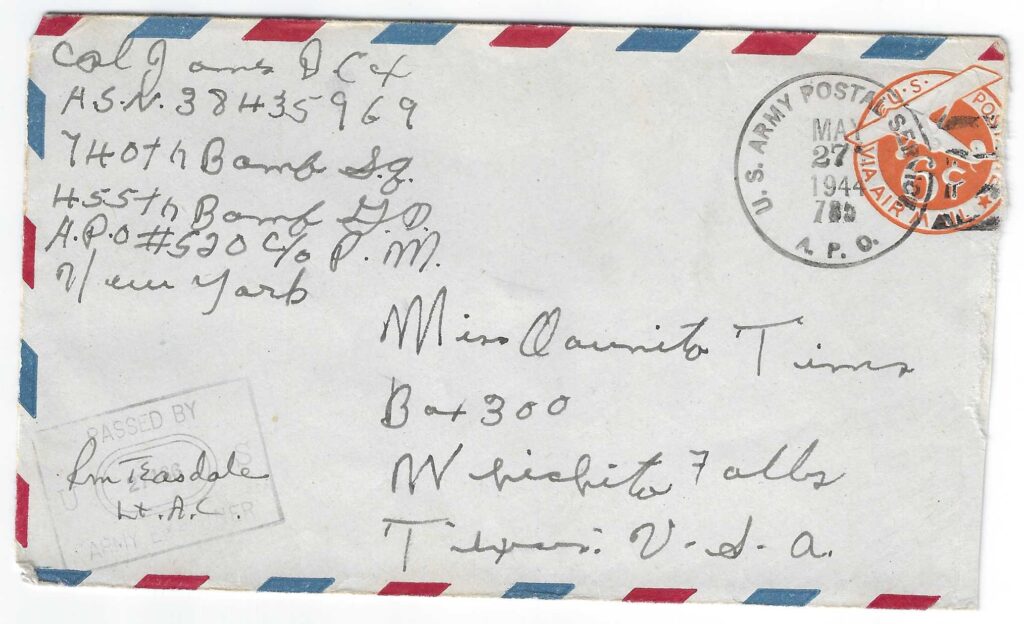 Cpl James D Cox
A.S.N. 38435969
740th Bomb Sq.
455th Bomb
A.P.O #520 c/o P.M.
New York
U.S. ARMY POSTAL SERVICE
MAY
27
1944
A.P.O.
U.S. POS
6c
VIA AIR MAIL
Miss Tims
Box 300
Whichita Falls
Texas. U-S-A.
PASSED BY
U S
ARMY EXAMINER
RM Teasdale
Lt. A.C.